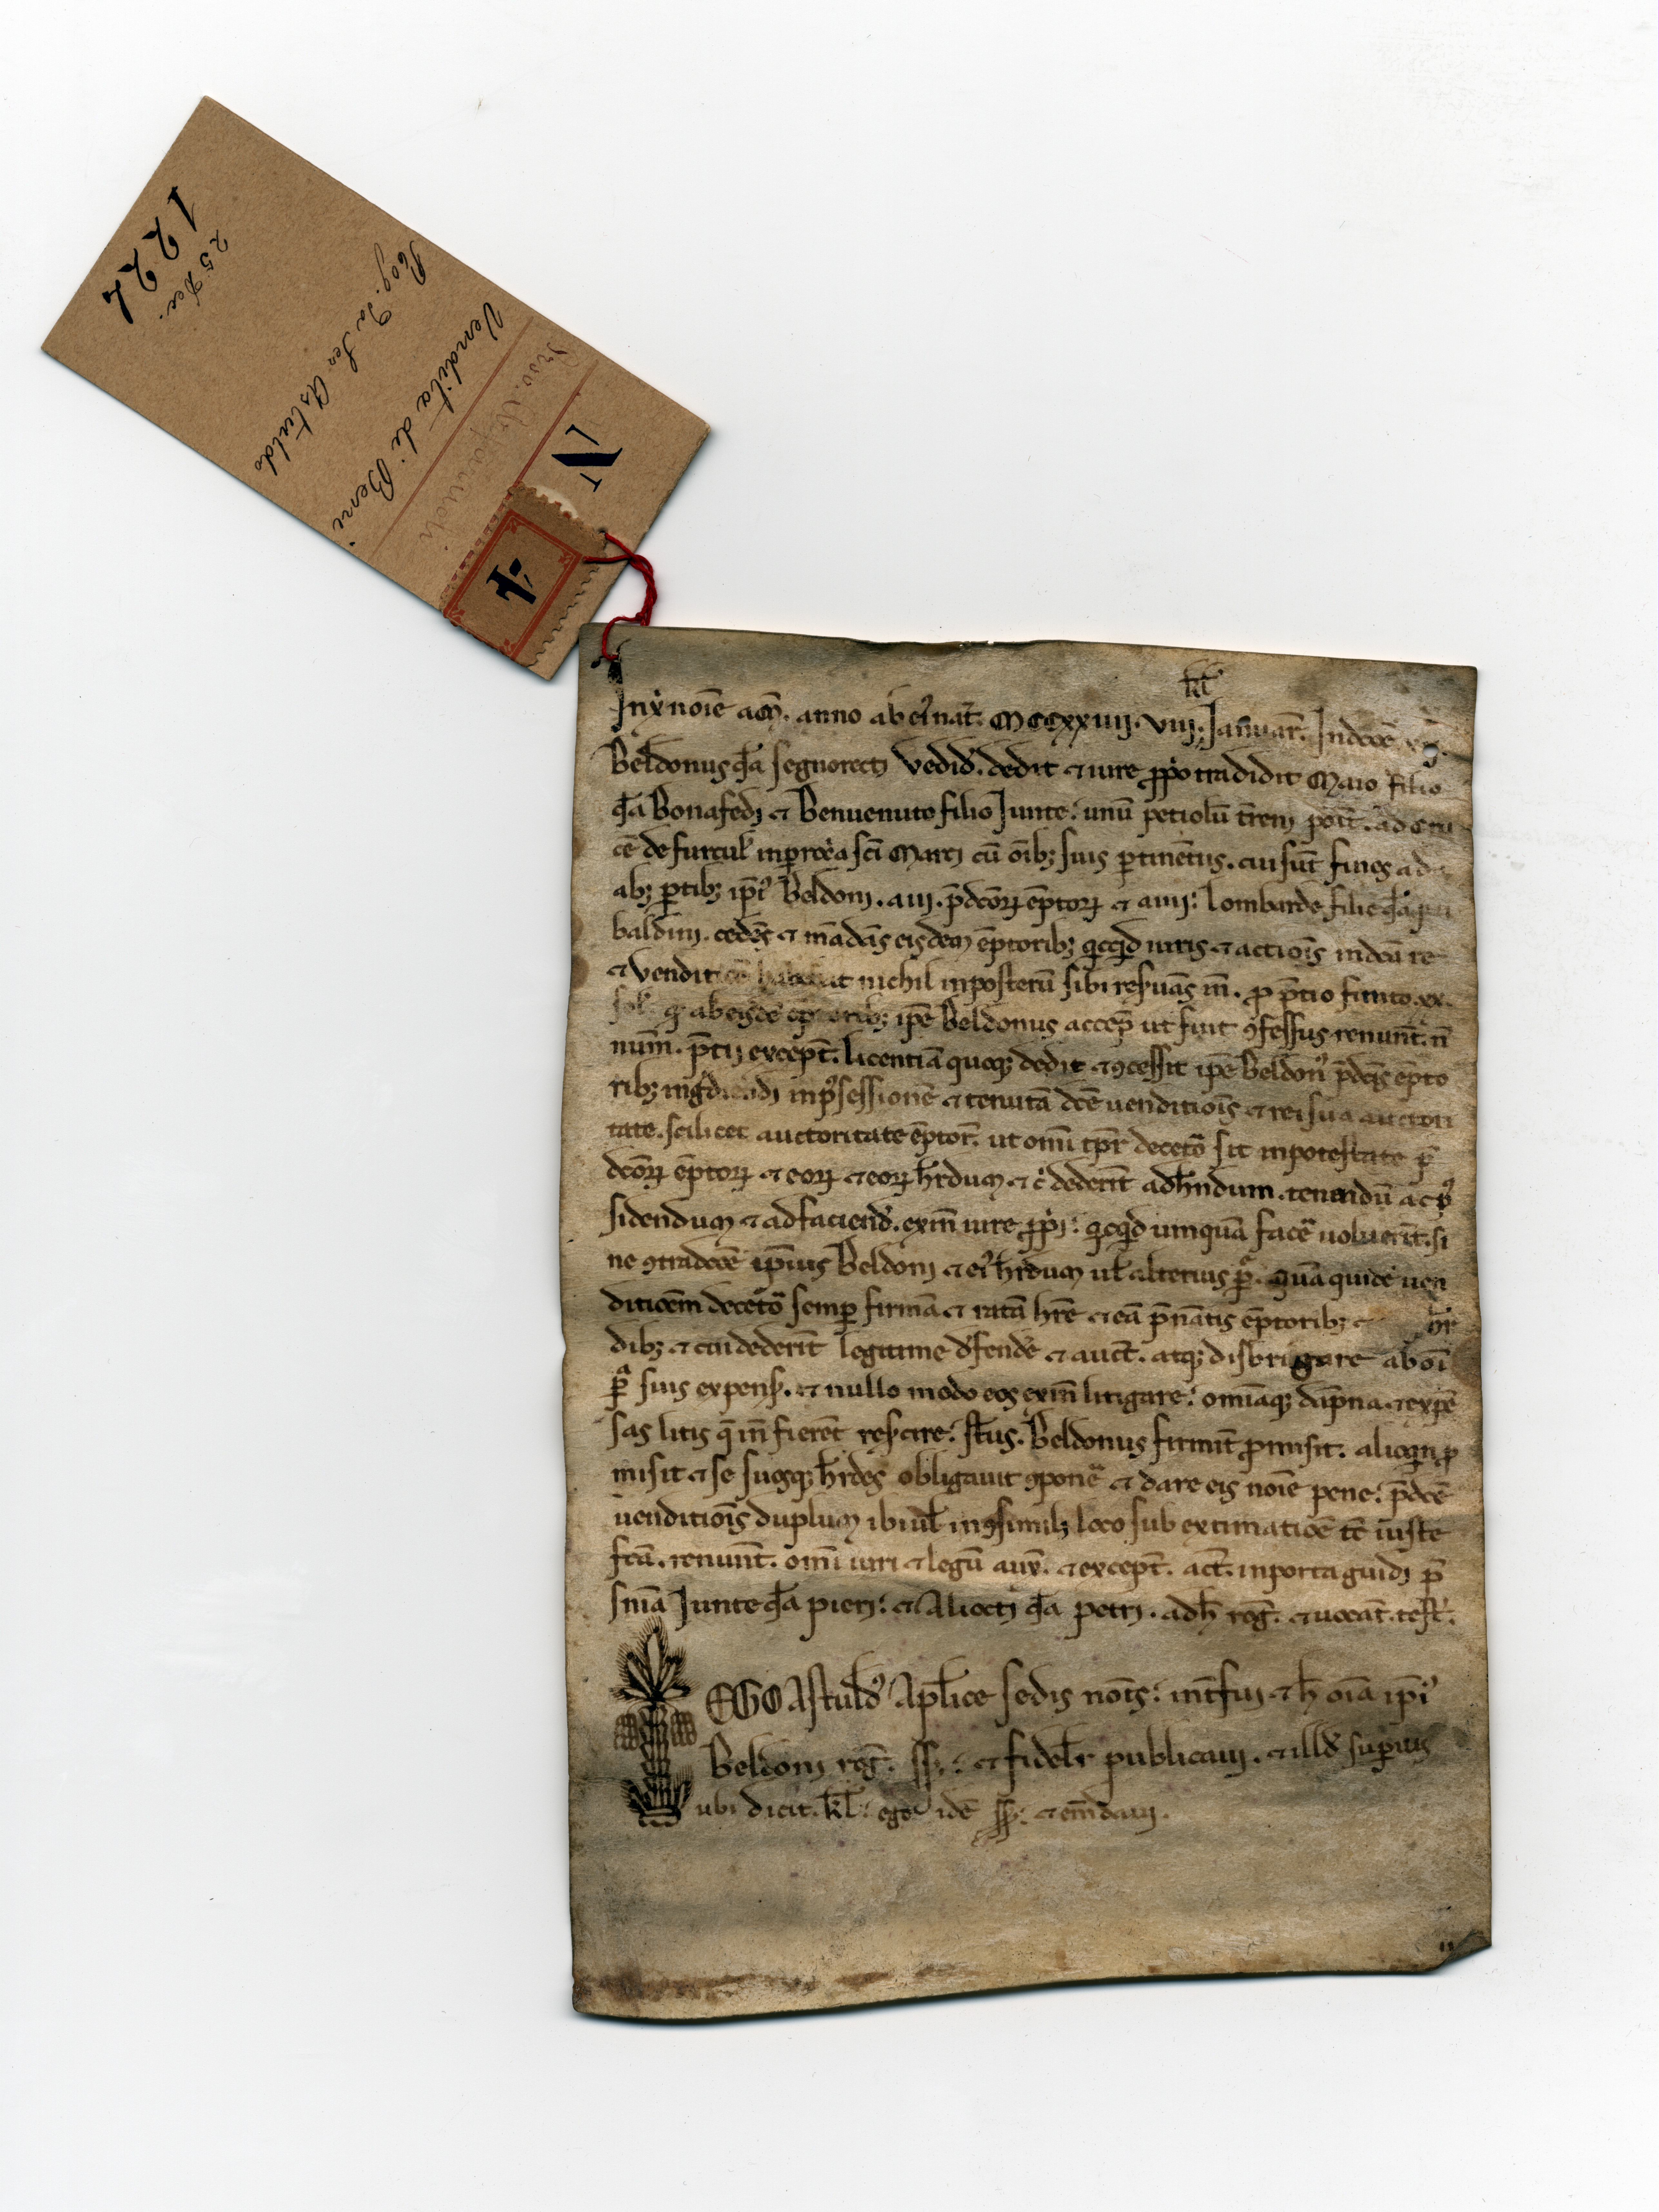 N
4
Vendita di Beni
Rog. da Ser Astuldo
25 Dec.
1224
kł
In xi noīe am̄. anno ab ei' nat̄. MCCXXIIII. VIII. Januar̄. Indcōe
Beldonus qᵈā segnorecti vēdid'. dedit ⁊ iure ꝓpo tradidit Maio filio
qᵈā Bonafedi ⁊ Benuenuto filio Junte: unū petiolū t̄reni poīt. ad cru
cē de furcuł' in ꝑrocͥa sc̄i Marci cū oīb; suis ꝑtinētiis. cui sūt fines a
ab; ꝑtib; ipi' Beldoni. a iii. p̄dcōꝝ ēptoꝝ ⁊ a iiii: Lombarde filie qᵈā
baldini. cedēs ⁊ mādās eisdem ēptorib; qͥcqͥd iuris ⁊ actiōis in dcā re
⁊ vendit nichil in posterū sibi reseruās iñ. ꝓ p̄tio finito .xx.
ab eisdē ēptorib; ip̄e Beldonus accep̄ ut fuit ꝯfessus renunt̄. ñ
num̄. p̄tii except̄. licentiā quoq; dedit ⁊ ꝯcessit ip̄e Beldon' p̄dcīs ēpto
rib; ingͥdiendi in pͦsessionē ⁊ tenutā dcē uenditiōis ⁊ rei sua auctori
tate. scilicet auctoritate ēptor̄. ut omi tp̄r deceto sit in potestate p̄
dcōꝝ ēptoꝝ ⁊ eoꝝ ⁊ eoꝝ h̄rdum ⁊ cͥ dederīt ad h̄ndum. tenendū ac pͦs
sidendum ⁊ ad faciend'. exīn iure ꝓpͥi: qͥcqͥd umquā facē uoluerīt. si
ne ꝯtradcōe ipīus Beldoni ⁊ ei' h̄rdum uł alterius ꝑᵃ. quā quidē uen
ditiōem deceto semꝑ firmā ⁊ ratā h̄re ⁊ eā p̄nātis ēptorib; ⁊ h̄r
dib; ⁊ cui dederīt legitime d'fend'e ⁊ auct̄. atq; disbrigare ab oī
ꝑᵃ suis expens̄. ⁊ nullo modo eos exīn litigare: omīaq; dāpna ⁊ expē
sas litis q̄ iñ fierēt resꝑcire: s̄tus. Beldonus firmit̄ ꝓmisit. alioqͥn ꝓ
misit ⁊ se suosq; h̄rdes obligauit ꝯponē ⁊ dare eis noīe pene: p̄dcē
uenditiōis duplum ibi uł in ꝯsimili loco sub extimatiōe tc̄ iuste
fcā. renunt̄. omī iuri ⁊ legū aux̄. ⁊ except̄. act̄. in porta guidi p̄
sītia Junte qᵈā pieri: ⁊ Aliocti qᵈā petri. ad h̄ rog̅. ⁊ uocat̄. test̄.
EGO Astuld' Aplīce sedis not̄s: int̄fui ⁊ h̄ oīa ipi'
Beldoni rog̅. ss.: ⁊ fidelīr publicaui. ⁊ illd' suꝑius
ubi dicit. kł: ego idē ss.: ⁊ em̄daui.